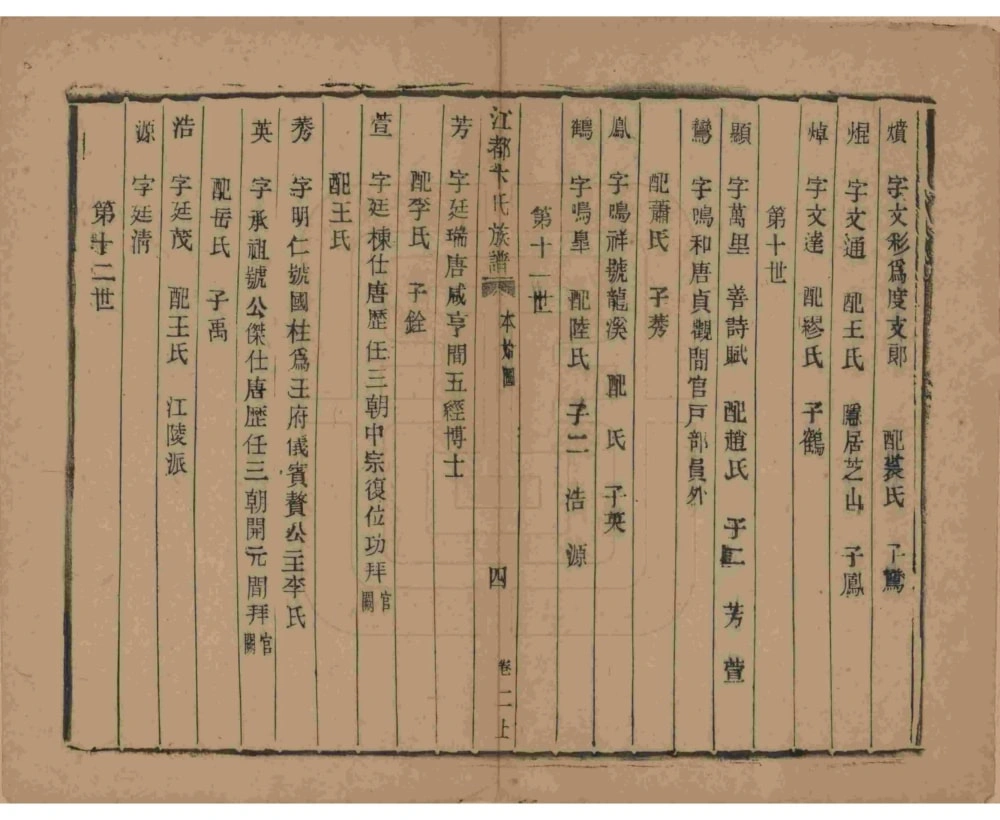 熉 字文彩爲度支郎 配裴氏 子鸞
焜 字文通 配王氏 隱居芝山 子鳳
焯 字文達 配繆氏 子鶴
第十世
顯 字萬里 善詩賦 配趙氏 子二 芳 萱
鸞 字鳴和唐貞觀間官戸部員外
配蕭氏 子莠
鳳 字鳴祥號龍溪 配 氏 子英
鶴 字鳴臯 配陸氏 子二 浩 源
第十一世
江都朱氏族譜 本始圖 四 卷二上
芳 字廷瑞唐咸亨間五經博士
配李氏 子銓
萱 字廷棟仕唐歷任三朝中宗復位功拜官闕
配王氏
莠 字明仁號國柱爲王府儀賓贅公主李氏
英 字承祖號公傑仕唐歷任三朝開元間拜官闕
配岳氏 子禹
浩 字廷茂 配王氏 江陵派
源 字廷清
第十二世